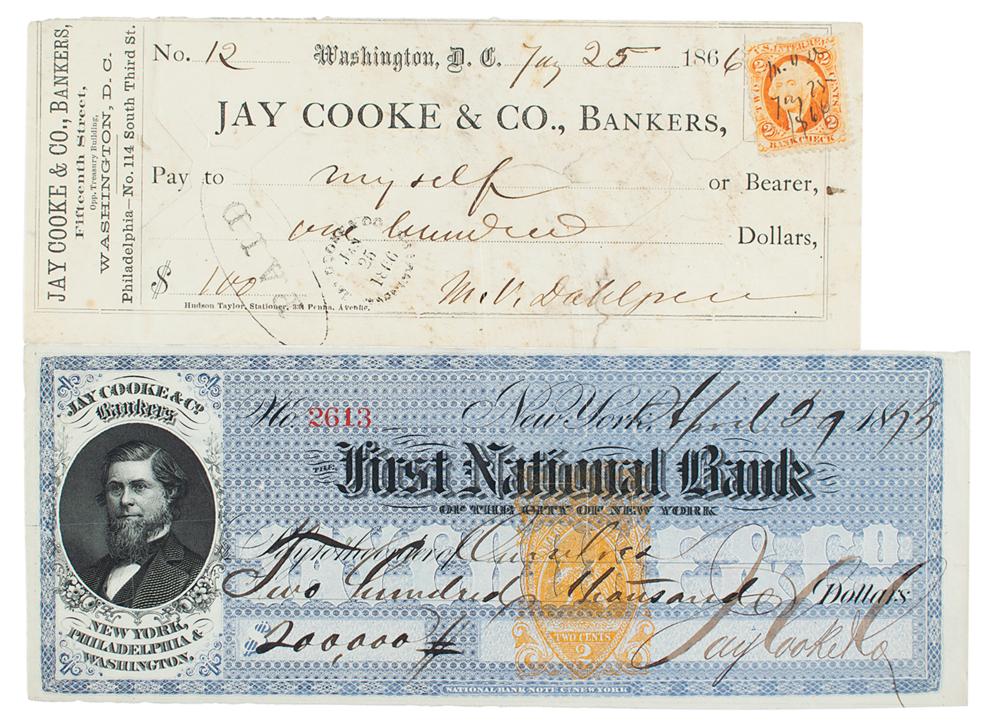 JAY COOKE & CO., BANKERS,
Fifteenth Street,
Opp. Treasury Building,
WASHINGTON, D. C.
Philadelphia—No. 114 South Third St.
No. 12 Washington, D. C. Jay 25 1866
U.S. INTER. REV.
TWO CENTS
2 2
BANK CHECK
Jay 25
1866
JAY COOKE & CO., BANKERS,
Pay to myself or Bearer,
one hundred Dollars,
PAID
JAN
25
1866
$ 100
M. V. Dahlgren
Hudson Taylor, Stationer, 334 Penna. Avenue.
JAY COOKE & Co.
Bankers
NEW YORK,
PHILADELPHIA &
WASHINGTON.
No. 2613 New York, April 29 1873
THE First National Bank
OF THE CITY OF NEW YORK
Pay to the order of Ourselves
Two hundred thousand Dollars
$ 200,000
TWO CENTS
2
Jay Cooke & Co
NATIONAL BANK NOTE Co. NEW YORK